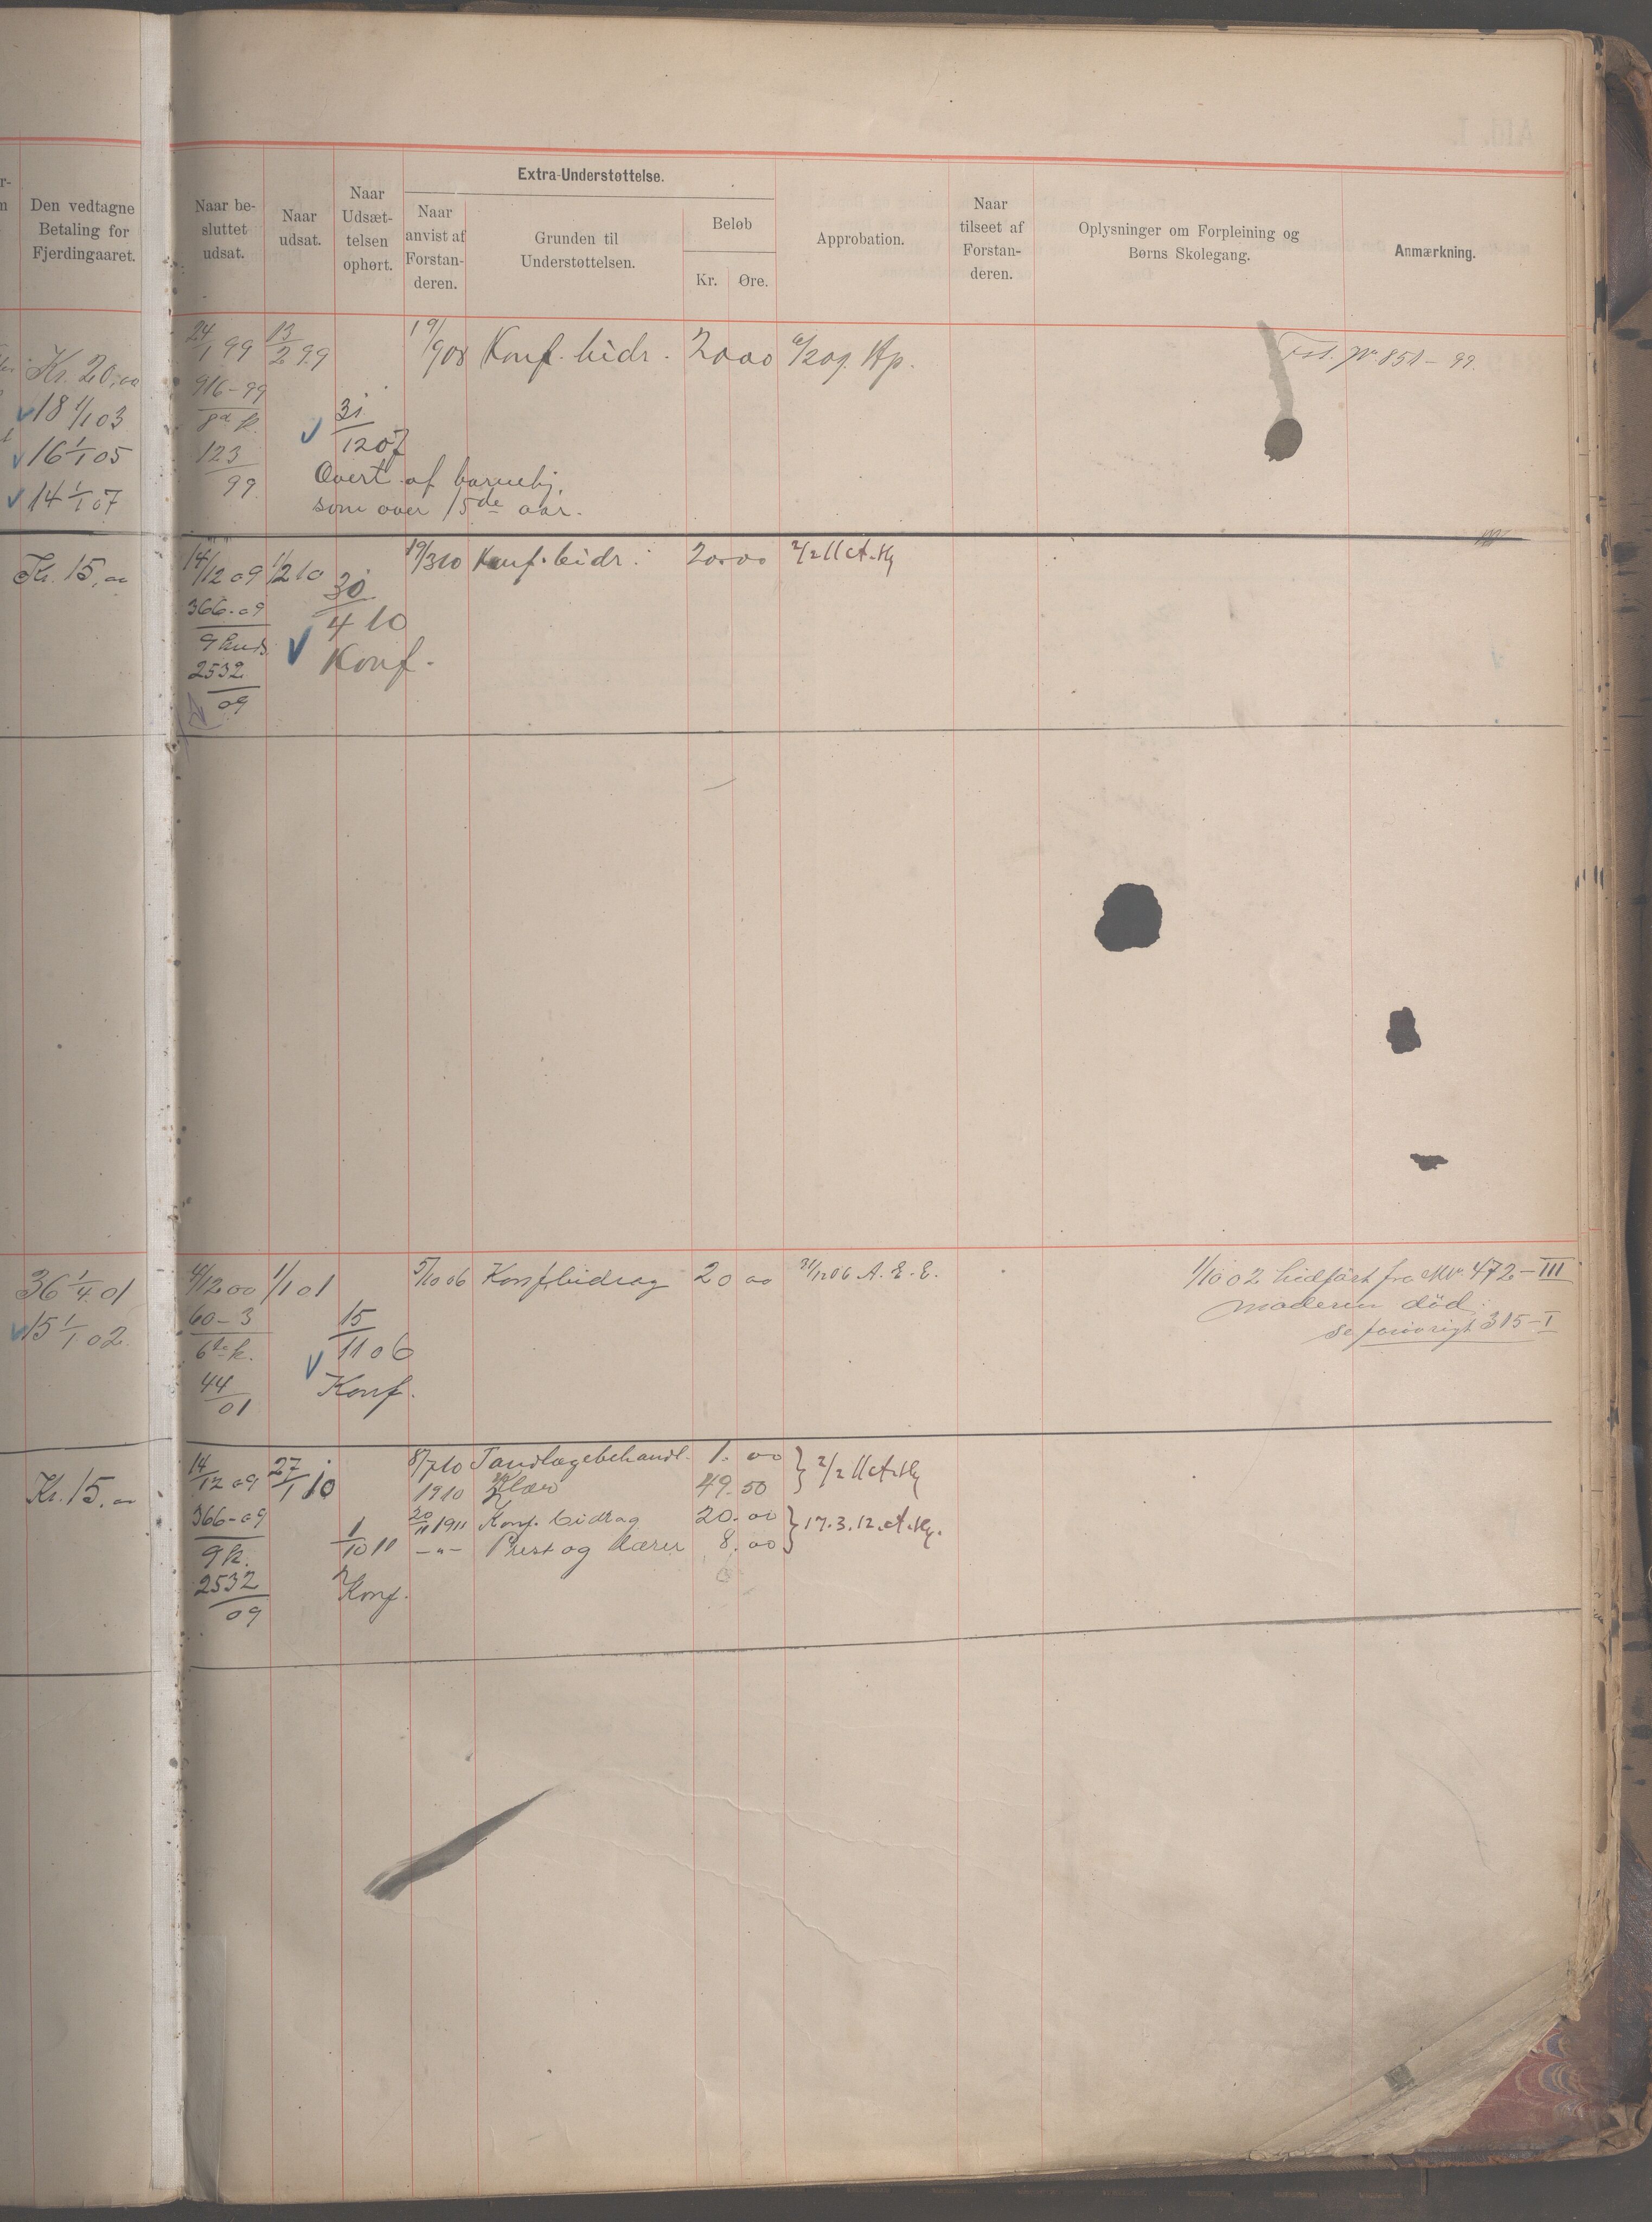 Extra-Understøttelse.
Den vedtagne
Betaling for
Fjerdingaaret.
Naar be-
sluttet
udsat.
Naar
udsat.
Naar
Udsæt-
telsen
ophørt.
Naar
anvist af
Forstan-
deren.
Grunden til
Understøttelsen.
Beløb
Kr. Øre.
Approbation.
Naar
tilseet af
Forstan-
deren.
Oplysninger om Forpleining og
Børns Skolegang.
Anmærkning.
Kr. 20,00
18 1/1 03
16 1/1 05
14 1/1 07
24/1 99
916-99
123
99
13/2 99
31/12 07
Overt. af barnehj.
som over 15de aar.
19/9 08 Konf. bidr. 20 00 6/2 09. Hp.
Nr 851-99.
Kr. 15,00
14/12 09
366-09
2532
09
1/2 10
30/4 10
Konf.
19/3 10 Konf. bidr. 20 00 2/2 11 A.Hj
36 1/4 01
15 1/1 02.
4/12 00
60-3
6te k.
44
01
1/1 01
15/11 06
Konf.
5/10 06 Konfbidrag 20 00 31/12 06 A. E. E.
1/10 02 hidført fra Nr. 472-III
moderen død.
se forøvrigt 315-I
Kr. 15,00
14/12 09
366-09
9 k.
2532
09
27/1 10
1/10 11
Konf.
8/7 10 Tandlægebehandl. 1.00 } 2/2 11 A.Hj
1910 Klær 49.50
20/11 1911 Konf. bidrag 20.00 } 17.3.12. A.Hj.
-"- Prest og lærer 8.00